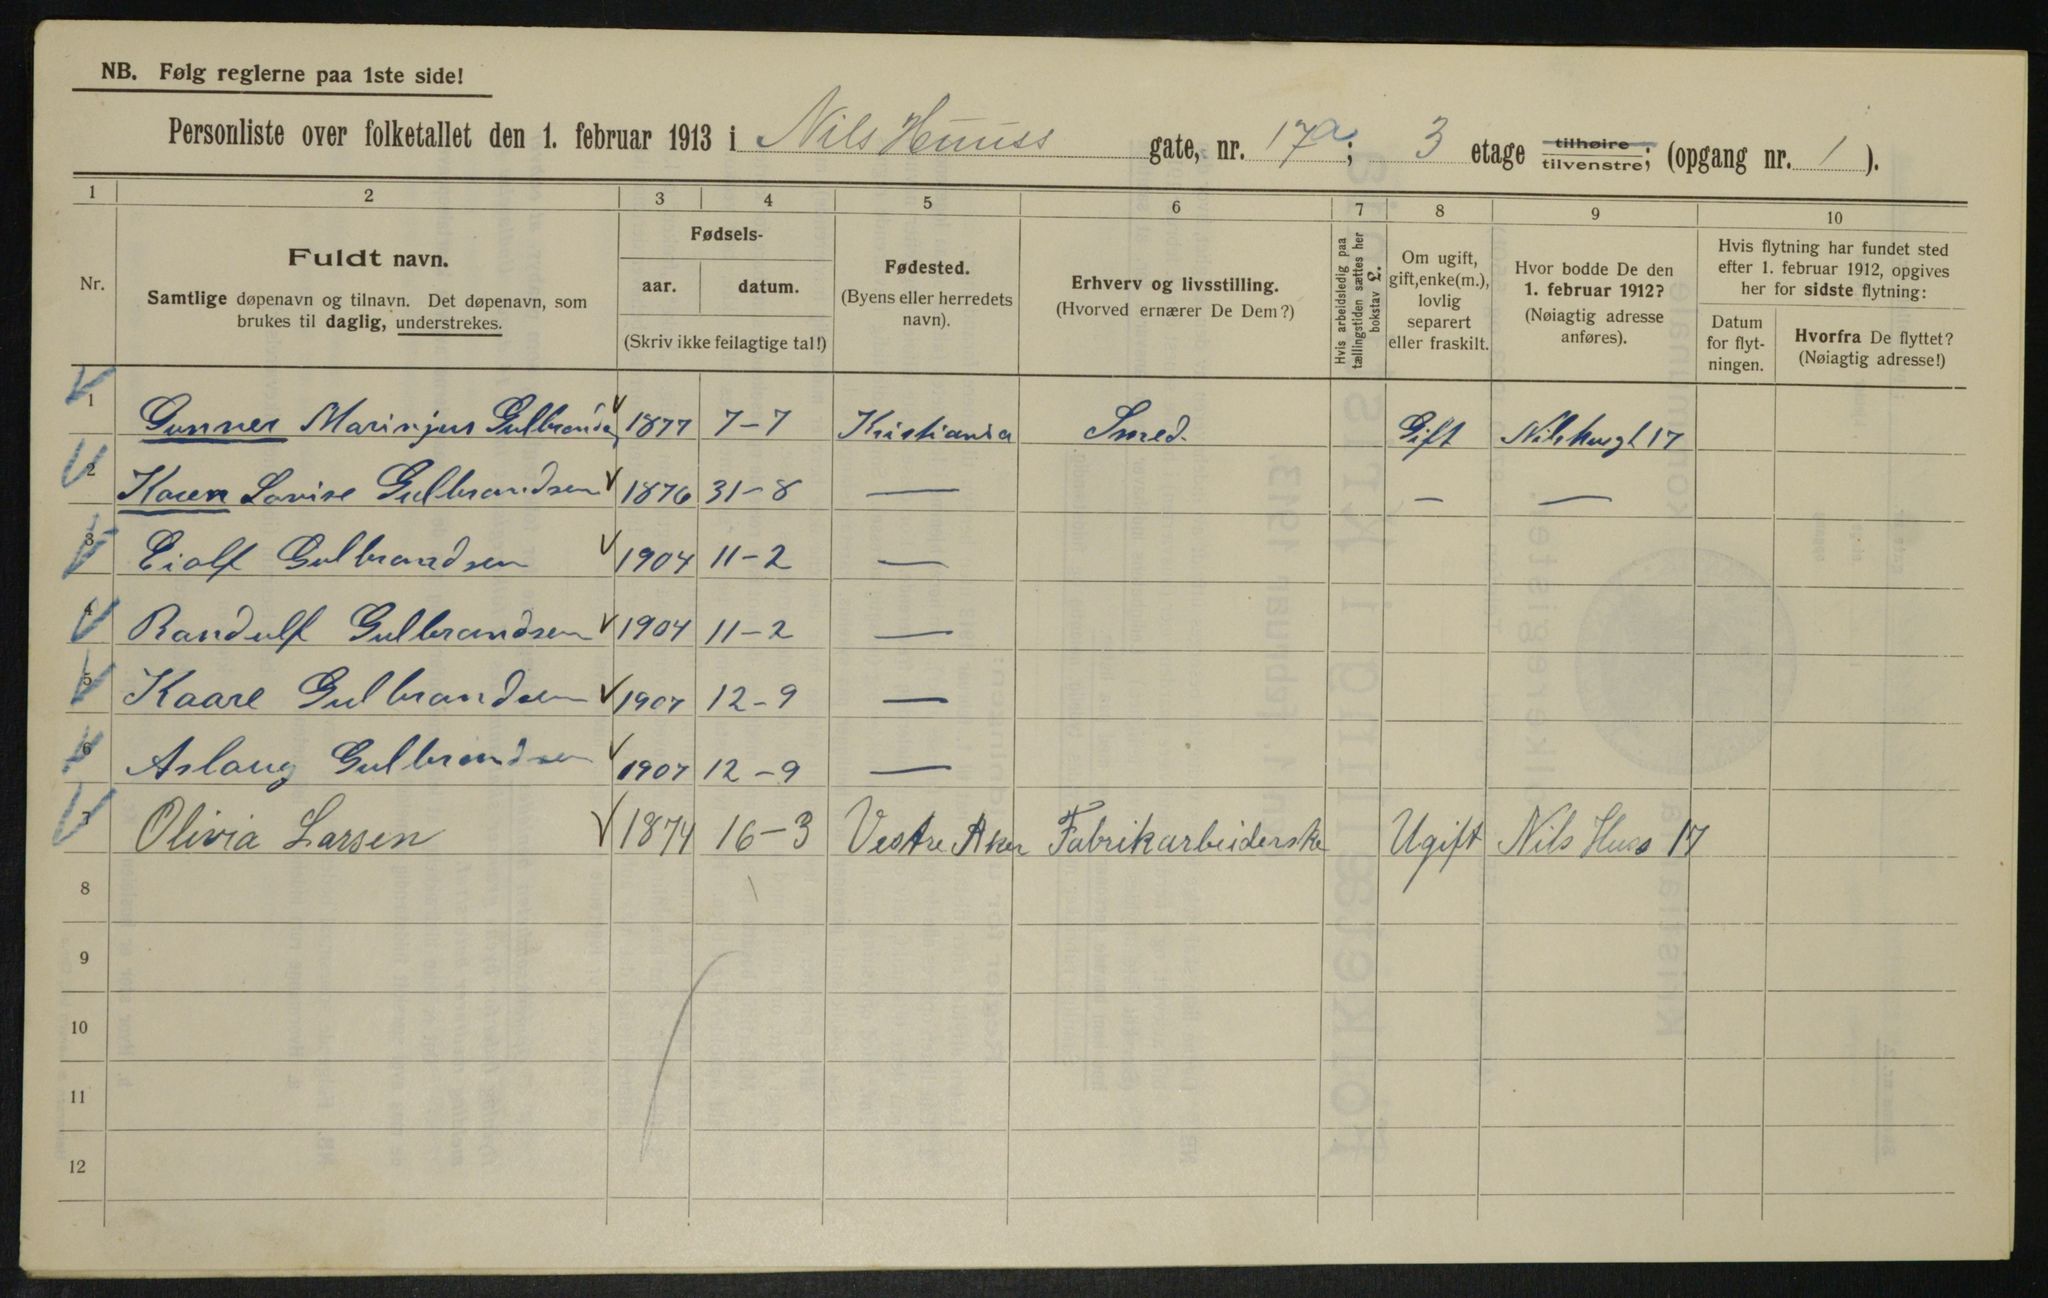 NB. Følg reglerne paa 1ste side!
Personliste over folketallet den 1. februar 1913 i Nils Huuss gate, nr. 17a; 3 etage tilhøire tilvenstre; (opgang nr. 1).
1 2 3 4 5 6 7 8 9 10
Nr.
Fuldt navn.
Samtlige døpenavn og tilnavn. Det døpenavn, som
brukes til daglig, understrekes.
Fødsels-
aar. datum.
(Skriv ikke feilagtige tal!)
Fødested.
(Byens eller herredets
navn).
Erhverv og livsstilling.
(Hvorved ernærer De Dem?)
Hvis arbeidsledig paa
tællingstiden sættes her
bokstav L.
Om ugift,
gift, enke(m.),
lovlig
separert
eller fraskilt.
Hvor bodde De den
1. februar 1912?
(Nøiagtig adresse
anføres).
Hvis flytning har fundet sted
efter 1. februar 1912, opgives
her for sidste flytning:
Datum
for flyt-
ningen.
Hvorfra De flyttet?
(Nøiagtig adresse!)
1 Gunner Marinjus Gulbrandsen 1877 7-7 Kristiania Smed. Gift Nilshusgt 17
2 Karen Lovise Gulbrandsen 1876 31-8 — — —
3 Eiolf Gulbrandsen 1904 11-2 —
4 Randulf Gulbrandsen 1904 11-2 —
5 Kaare Gulbrandsen 1907 12-9 —
6 Aslaug Gulbrandsen 1907 12-9 —
7 Olivia Larsen 1874 16-3 Vestre Aker Fabrikarbeiderske Ugift Nils Huss 17
8
9
10
11
12